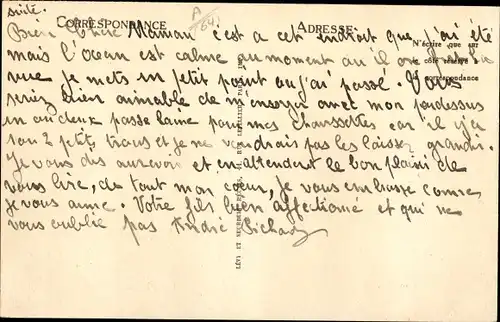 suite.
CORRESPONDANCE
ADRESSE
Bien Chère Maman c'est a cet endroit que j'ai été
N'écrire que sur
côté réservé
correspondance
mais l'océan est calme au moment au il ont pris la
vue je mets un petit point au j'ai passé. Vous
seriez bien aimable de m'envoyer avec mon pardessus
un au deux passe laine pour mes chaussettes car il y'a
1 ou 2 petits trous et je ne voudrais pas les laisser grandir.
Je vous dis aurevoir et en attendant le bon plaisir de
vous lire, de tout mon cœur, je vous embrasse comme
je vous aime. Votre fils bien affectionné et qui ne
vous oublie pas André
LÉVI ET NEURDEIN RÉUNIS,